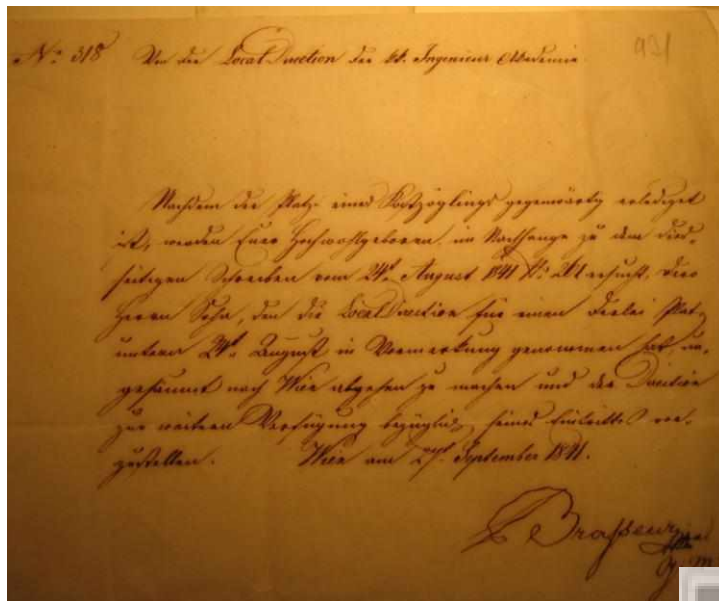 No: 318 Von der Local Direction der kk. Ingenieur Akademie.
931
Nachdem der Platz eines Kostzöglings gegenwärtig erlediget
ist, werden Euer Hochwohlgeboren, im Nachhange zu dem dies-
seitigen Schreiben vom 24t August 1841 No: 261 ersucht, Dero
Herrn Sohn, den die Local Direction für einen derlei Platz
unterm 24t August in Vormerkung genommen hat, un-
gesäumt nach Wien abgehen zu machen und der Direction
zur weitern Verfügung bezüglich seines Eintrittes vor-
zustellen. Wien am 27t September 1841.
Brasseur